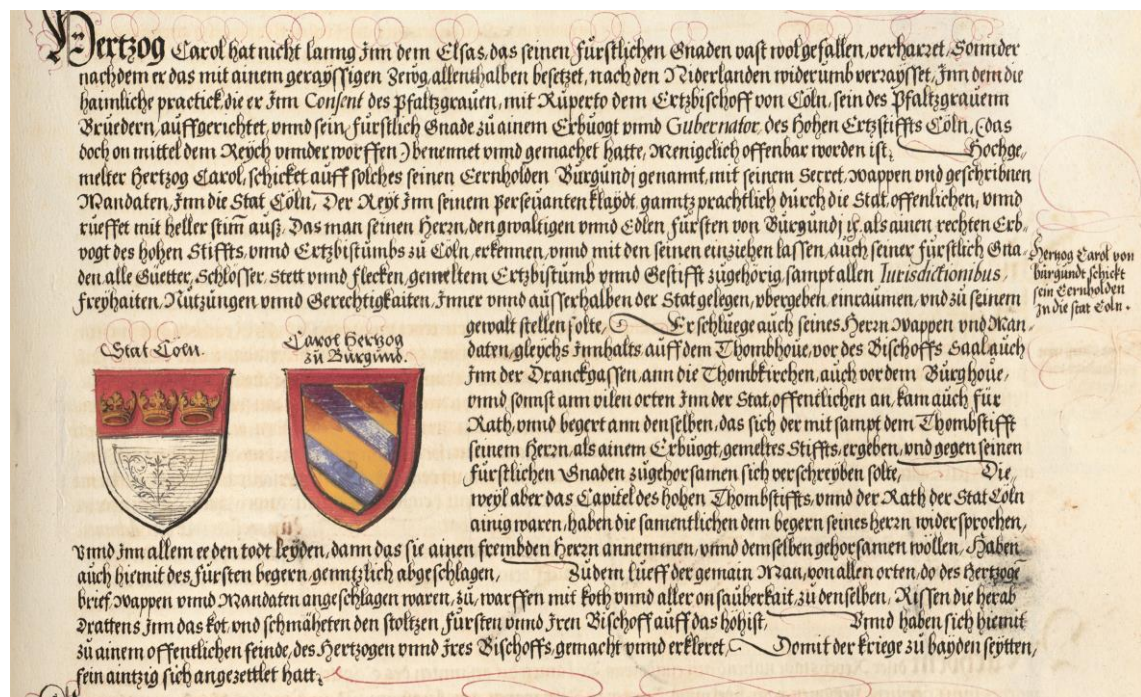 Hertzog Carol hat nicht lanng Jnn dem Elsas, das seinen Fürstlichen Gnaden vast wolgefallen, verharret, Sonnder
nachdem er das mit ainem geraÿssigen Zeŵg allenthalben besetzet, nach den Niderlanden widerumb verraÿsset, Jnn dem die
haimliche practick, die er Jnn Consent des Pfaltzgrauen, mit Ruperto dem Ertzbischoff von Cöln, sein des Pfaltzgrauenn
Bruedern, auffgerichtet, vnnd sein Fürstlich Gnade zů ainem Erbuogt vnnd Gubernator, des Hohen Ertzstiffts Cöln, (das
doch on mittel dem Reÿch vnnderworffen) benennet vnnd gemachet hatte, Menigclich offenbar worden ist, Hochge,
melter Hertzog Carol, schicket auff solches seinen Eernholden Burgundj genannt, mit seinem Secret, Wappen vnd geschribnen
Mandaten, Jnn die Stat Cöln, Der Reÿt Jnn seinem Perseuanten klaÿdt, ganntz prachtlich durch die Stat, offenlichen, vnnd
rüeffet mit heller stim̄ auß, Das man seinen Herrn, den gwaltigen vnnd Edlen Fürsten von Burgundj &c. als ainen rechten Erb,
vogt des hohen Stiffts, vnnd Ertzbistumbs zů Cöln, erkennen, vnnd mit den seinen einziehen lassen, auch seiner fürstlich Gna,
den alle Guetter, Schlosser, Stett vnnd Flecken, gemeltem Ertzbistumb vnnd Gestifft zugehörig, sampt allen Iurisdictionibus,
Freÿhaiten, Nutzüngen vnnd Gerechtigkaiten, Jnner vnnd aüsserhalben der Stat gelegen, vbergeben einraümen, vnd zů seinem
Hertzog Carol von
burgundt schickt
sein Eernholden
Jn die stat Coln.
gewalt stellen solte, Er schluege auch seines Herrn Wappen vnd Man,
daten, gleÿchs Jnnhalts, auff dem Thombhoue, vor des Bischoffs Saal, auch
Jnn der Dranckgassen, ann die Thombkirchen, auch vor dem Bürghoue,
vnnd sonnst ann vilen orten Jnn der Stat, offentlichen an, kam auch für
Rath, vnnd begert ann denselben, das sich der mit sampt dem Thombstifft
seinem Herrn, als ainem Erbuogt, gemeltes Stiffts, ergeben, vnd gegen seinen
Fürstlichen Gnaden zůgehorsamen sich verschreÿben solte, Die,
weÿl aber das Capitel des hohen Thombstiffts, vnnd der Rath der Stat Cöln
ainig waren, haben die samentlichen dem begern seines herrn widersprochen,
Stat Cöln.
Carol Hertzog
zů Burgund.
Vnnd Jnn allem ee den todt leÿden, dann das sie ainen frembden Herrn annemmen, vnnd demselben gehorsamen wöllen, Haben
auch hiemit des Fursten begern, genntzlich abgeschlagen, Zudem lüeff der gemain Man, von allen orten, do des Hertzogē
brief, Wappen vnnd Mandaten angeschlagen waren, zů, warffen mit koth vnnd aller onsaüberkait, zů denselben, Rissen die herab
Drattens Jnn das kot, vnd schmäheten den stoltzen Fursten vnnd Jren Bischoff auff das höhist, Vnnd haben sich hiemit
zů ainem offentlichen feinde, des Hertzogen vnnd Jres Bischoffs, gemacht vnnd erkleret, Domit der kriege zů baÿden seÿtten,
fein aintzig sich angezettlet hatt,